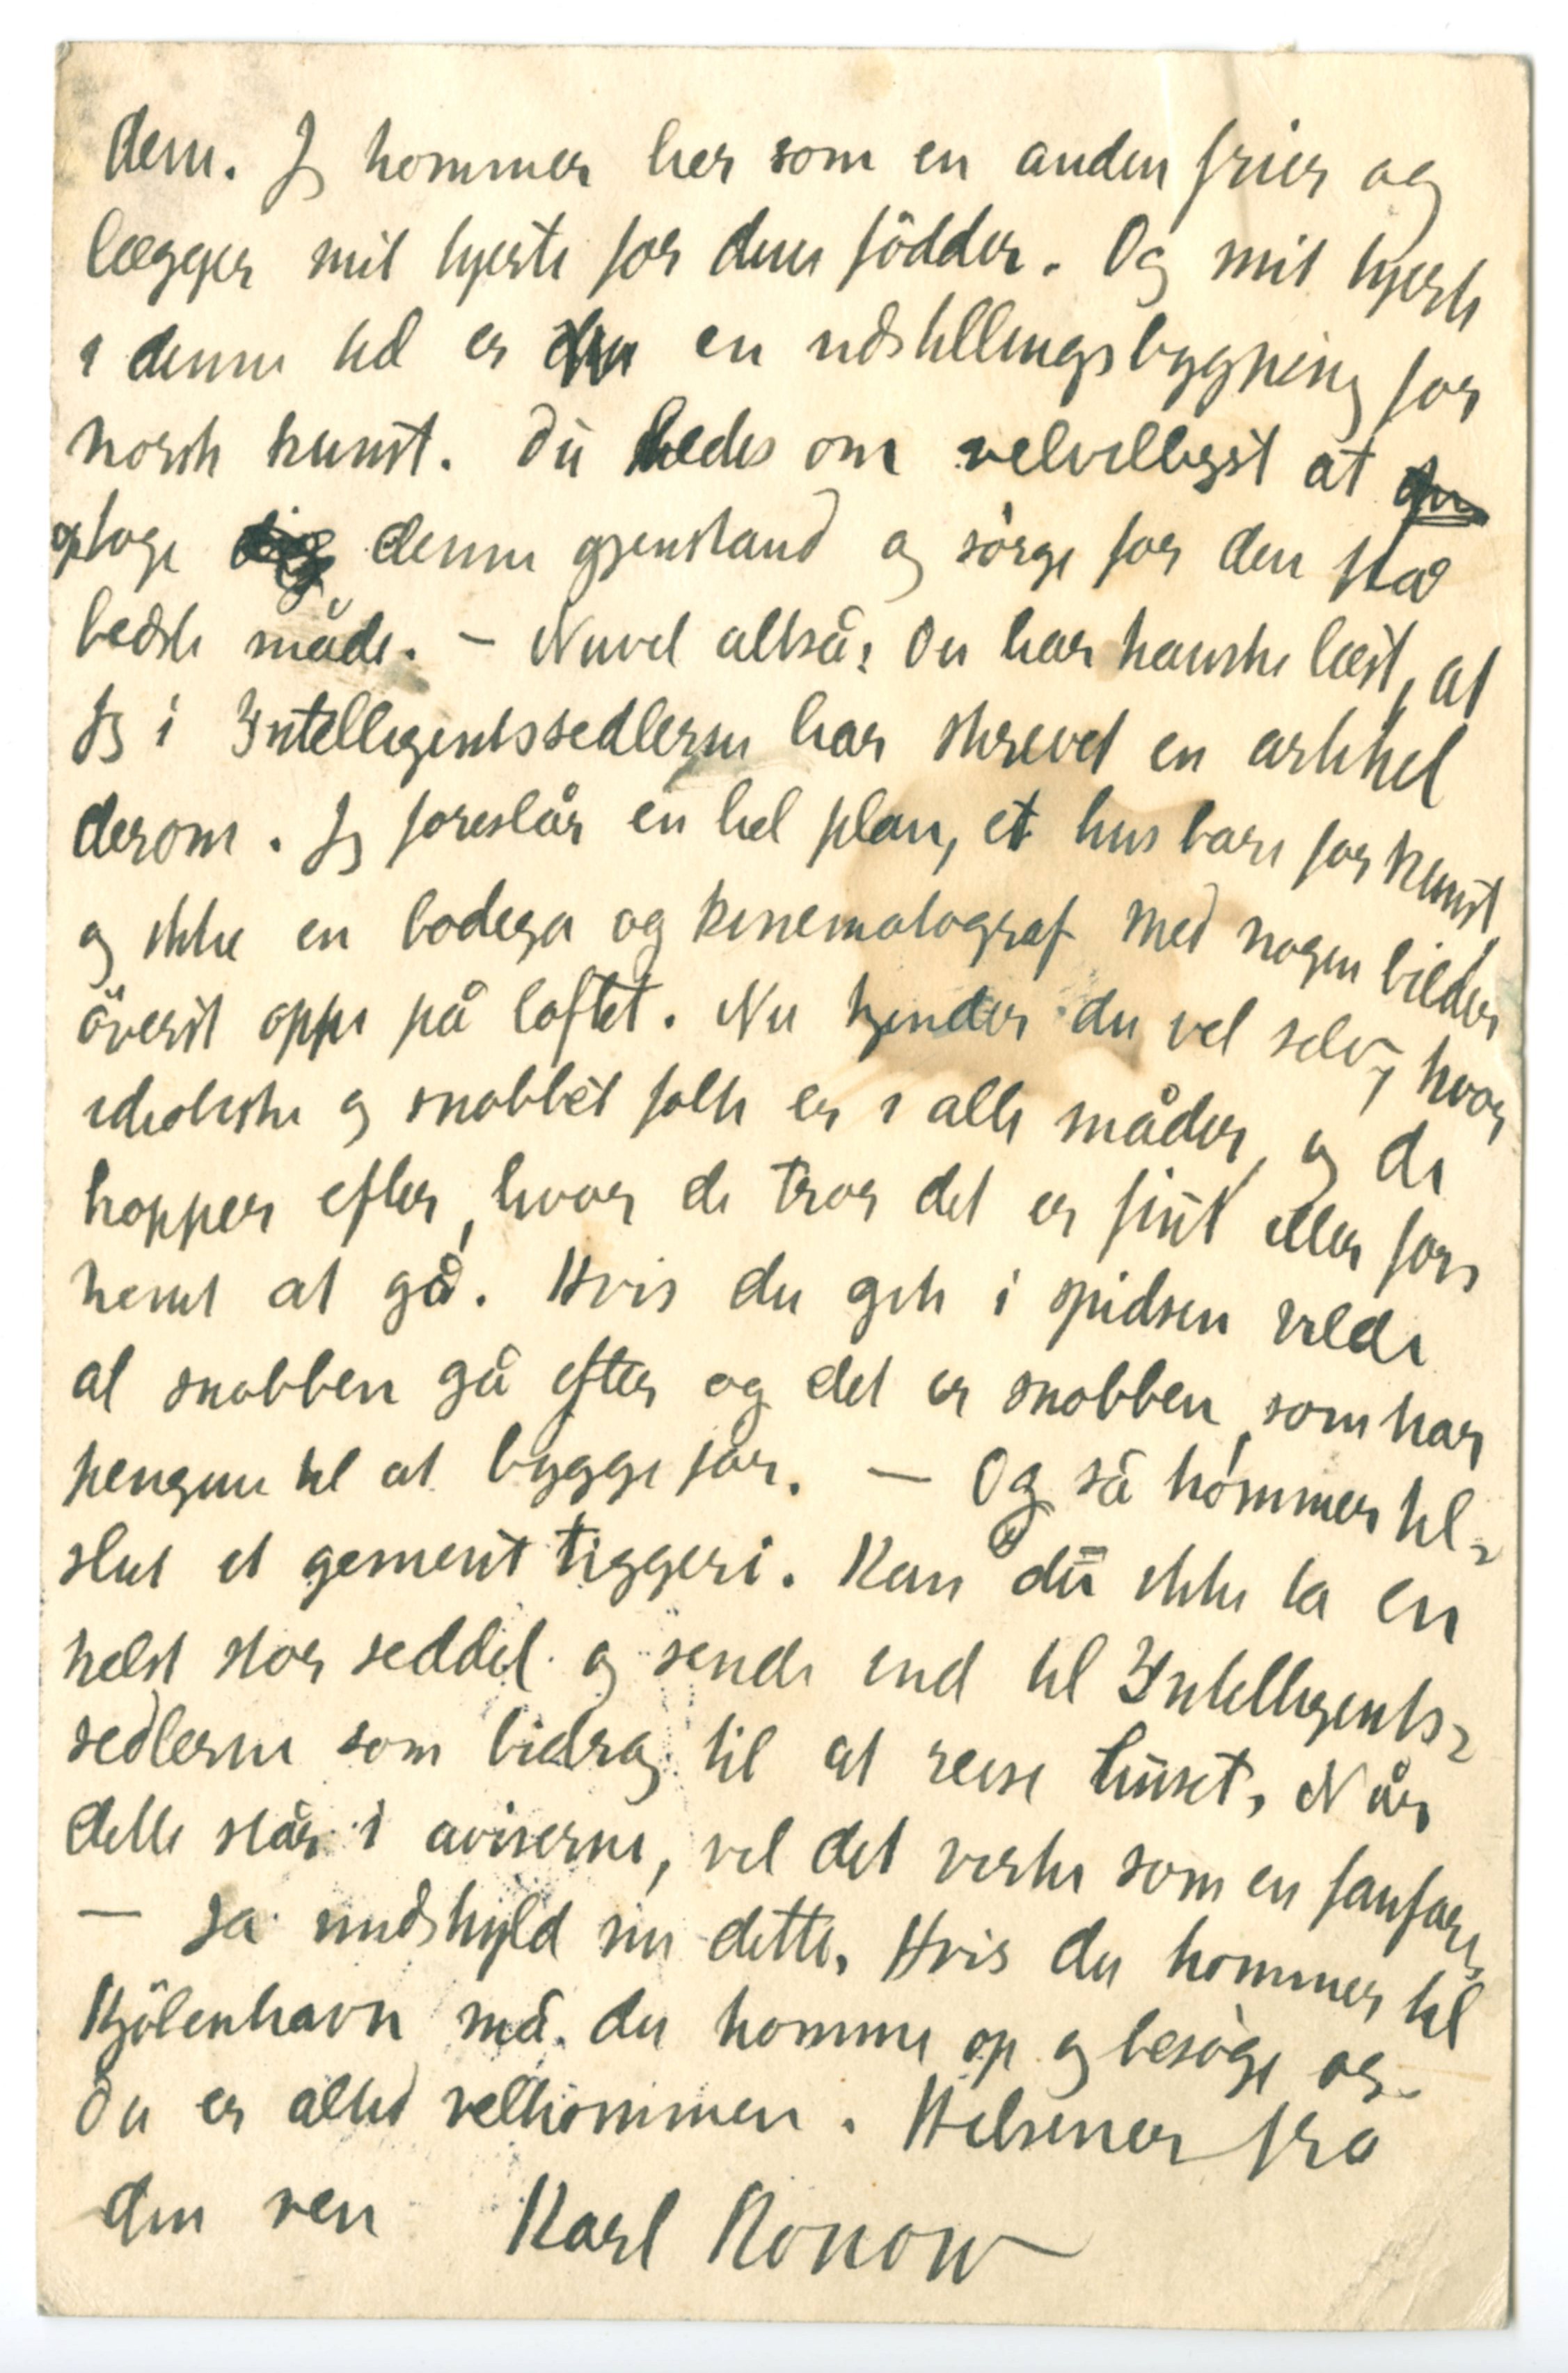 dem. Jeg kommer her som en anden frier og
lægger mit hjerte for dine födder. Og mit hjerte
i denne tid er en udstillingsbygning for
norsk kunst. Du bedes om velvilligst at
optage denne gjenstand og sörge for den på
bedste måde. – Nuvel altså: Du har kanske læst, at
jeg i Intelligentssedlerne har skrevet en artikkel
derom. Jeg foreslår en hel plan, et hus bare for kunst
og ikke en bodega og kinematograf med nogen bilder
överst oppe på loftet. Nu kjender du vel selv, hvor
idiotiske og snobbet folk er i alle måder, og de
hopper efter, hvor de tror det er fint eller for-
nemt at gå. Hvis du gik i spidsen vilde
al snobben gå efter og det er snobben, som har
pengene til at bygge for. – Og så kommer til-
slut et gement tiggeri. Kan du ikke ta en
helst stor seddel og sende ind til Intelligents-
sedlerne som bidrag til at reise huset. Når
dette står i aviserne, vil det virke som en fanfare.
– Ja undskyld nu dette. Hvis du kommer til
Kjöbenhavn må du komme op og besöge os.
Du er altid velkommen. Hilsener fra
din ven Karl Konow